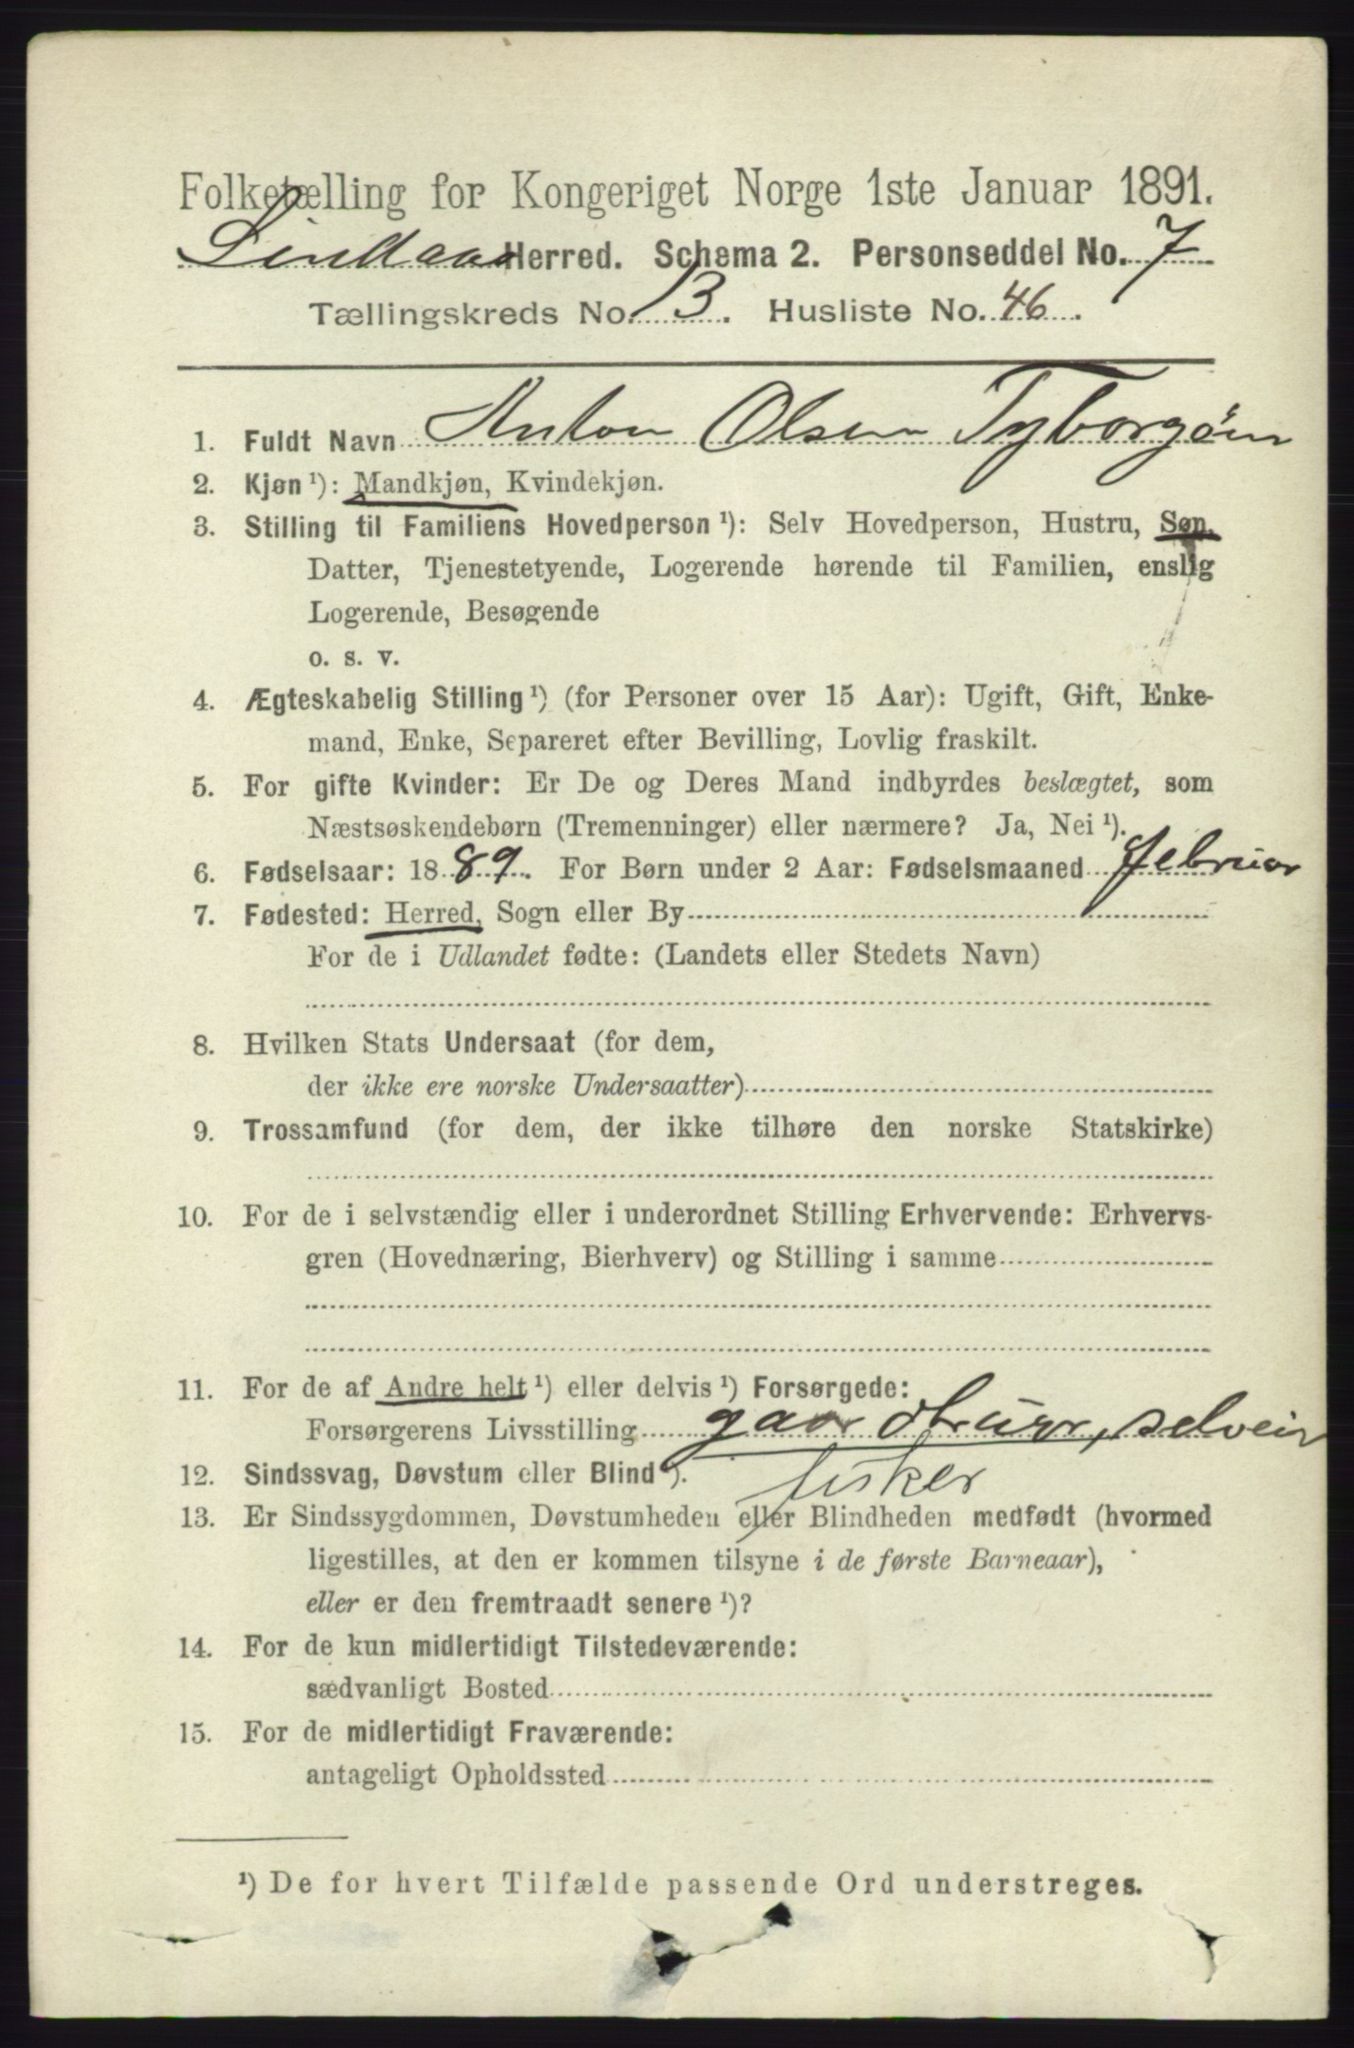 Folketælling for Kongeriget Norge 1ste Januar 1891.
Lindaas Herred. Schema 2. Personseddel No. 7
Tællingskreds No. 13. Husliste No. 46.
1. Fuldt Navn Anton Olsen
2. Kjøn ¹): Mandkjøn, Kvindekjøn.
3. Stilling til Familiens Hovedperson ¹): Selv Hovedperson, Hustru, Søn,
Datter, Tjenestetyende, Logerende hørende til Familien, enslig
Logerende, Besøgende
o. s. v.
4. Ægteskabelig Stilling ¹) (for Personer over 15 Aar): Ugift, Gift, Enke-
mand, Enke, Separeret efter Bevilling, Lovlig fraskilt.
5. For gifte Kvinder: Er De og Deres Mand indbyrdes beslægtet, som
Næstsøskendebørn (Tremenninger) eller nærmere? Ja, Nei ¹).
6. Fødselsaar: 1889. For Børn under 2 Aar: Fødselsmaaned februar
7. Fødested: Herred, Sogn eller By
For de i Udlandet fødte: (Landets eller Stedets Navn)
8. Hvilken Stats Undersaat (for dem,
der ikke ere norske Undersaatter)
9. Trossamfund (for dem, der ikke tilhøre den norske Statskirke)
10. For de i selvstændig eller i underordnet Stilling Erhvervende: Erhvervs-
gren (Hovednæring, Bierhverv) og Stilling i samme
11. For de af Andre helt ¹) eller delvis ¹) Forsørgede:
Forsørgerens Livsstilling gaardbruer, selveir
fisker
12. Sindssvag, Døvstum eller Blind ¹).
13. Er Sindssygdommen, Døvstumheden eller Blindheden medfødt (hvormed
ligestilles, at den er kommen tilsyne i de første Barneaar),
eller er den fremtraadt senere ¹)?
14. For de kun midlertidigt Tilstedeværende:
sædvanligt Bosted
15. For de midlertidigt Fraværende:
antageligt Opholdssted
¹) De for hvert Tilfælde passende Ord understreges.